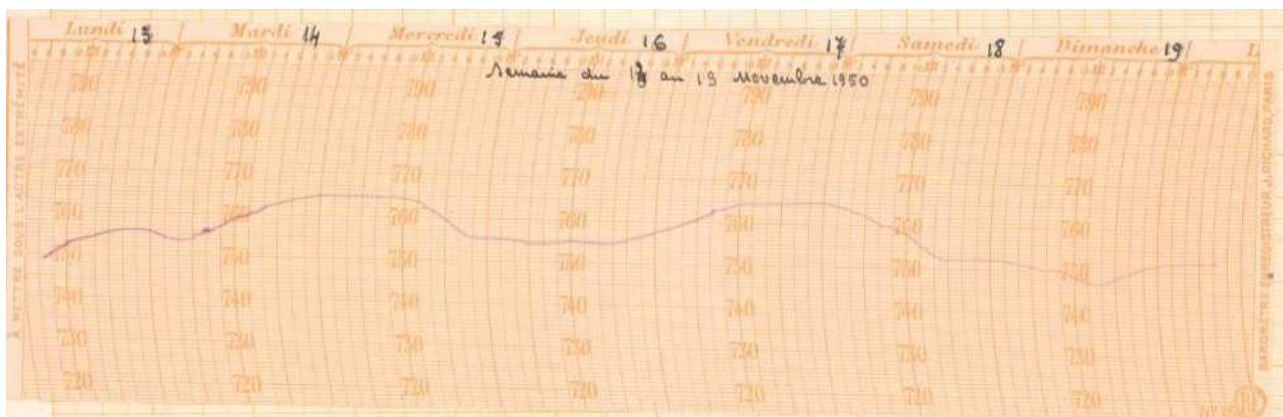 Lundi 13 Mardi 14 Mercredi 15 Jeudi 16 Vendredi 17 Samedi 18 Dimanche 19
Semaine du 13 au 19 Novembre 1950
790 790 790 790 790 790 790
780 780 780 780 780 780 780
770 770 770 770 770 770 770
760 760 760 760 760 760 760
750 750 750 750 750 750 750
740 740 740 740 740 740 740
730 730 730 730 730 730 730
720 720 720 720 720 720 720
A METTRE SOUS L'AUTRE EXTRÉMITÉ
BAROMÈTRE ENREGISTREUR J. RICHARD, PARIS